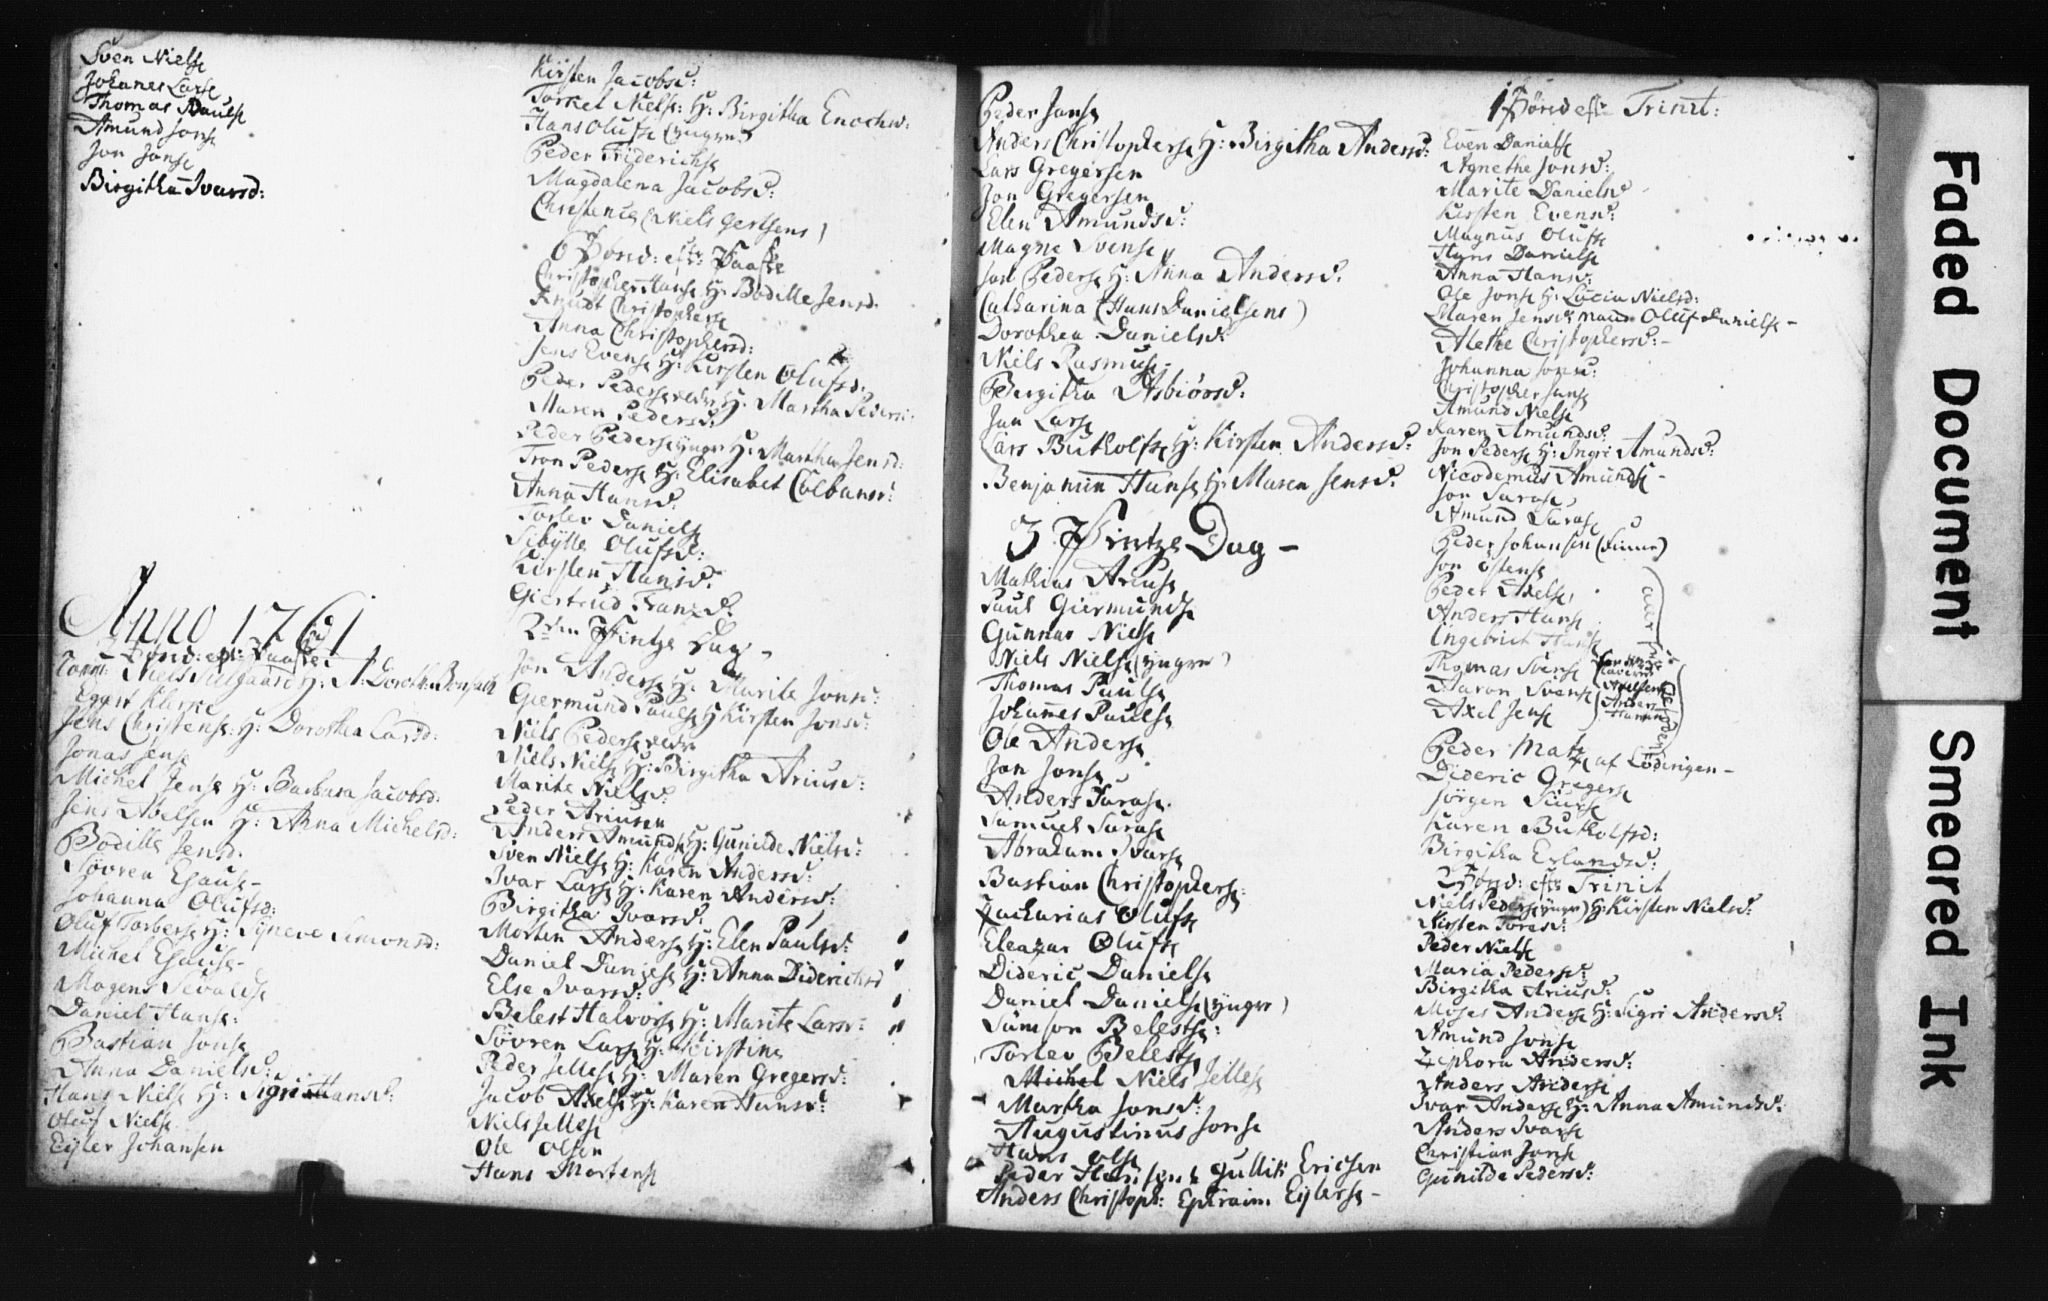 Sven Nielse
Johanes Larse
Thomas Paulse
Amund Jonse
Jon Jonse
Birgitha Ivarsd:
Anno 1761
Niels H: Doroth:
Eggert
Jens Christense H: Dorothea Larsd:
Jonas Jense
Michel Jense H: Barbara Jacobsd:
Jens Abelsen H: Anna Michelsd:
Bodille Jensd.
Søvren
Johanna Olufsd:
Oluf Torberse H: Syneve Simonsd:
Michel
Mogens Sivaldse
Daniel Hanse:
Bastian Jonse
Anna Danielsd:
Hans Nielse H: Sigri Hansd:
Oluf Nielse
Eyler Johansen
Kirsten Jacobsd:
Torkel Nielse: H: Birgitha Enochsd:
Hans Olufse (yngre)
Peder Friderichse
Magdalena Jacobsd:
Christense (Niels Gertsens)
6 Sønd: eftr: Paaske
Christopher Hanse H: Bodille Jensd.
Knudt Christopherse
Anna Christophersd:
Jens Evense H: Kirsten Olufsd:
Peder Pederse eldre H: Martha Peders:
Maren Pedersd:
Peder Pederse yngre H: Martha Jensd:
Tron Pederse H: Elisabet Colbansd:
Anna Hansd.
Torlev Danielse
Sibylle Olufsd:
Kirsten Hansd:
Giertrud Franzd.
2den Pintze Dag -
Jon Anderse H: Marite Jonsd:
Giermund Paulse H Kirsten Jonsd:
Niels Pederse eldre
Niels Nielse H: Birgitha Ariusd:
Marite Nielsd:
Peder Ariusen
Anders Amundse H: Gunilde Nielsd:
Sven Nielse H: Karen Andersd:
Ivar Larse H: Karen Andersd:
Birgitha Ivarsd:
Morten Anderse H: Elen Paulsd:
Daniel Danielse H: Anna Diderichsd
Else Ivarsd:
Belest Halvorse H: Marite Larsd:
Søvren Larse H: Kirstine
Peder Jellese H: Maren Gregersd:
Jacob Axelse H: Karen Hansd:
Niels Jellese
Ole Olsen
Hans Mortense
Peder Janse
Anders Christopherse H: Birgitha Andersd:
Lars Gregersen
Jon Gregersen
Elen Amundsd:
Magne Svense
Joel Pederse H: Anna Andersd.
Catharina (Hans Danielsens)
Dorothea Danielsd:
Niels Rasmuse
Bergitha Asbiörsd:
Jan Larse
Lars Butholfse H: Kirsten Andersd:
Benjamin Hanse H: Maren Jensd.
3. Pintze Dag -
Mathias Ariuse
Paul Giermundse
Gunnar Nielse
Niels Nielse (yngre)
Thomas Paulse
Johannes Paulse
Ole Anderse
Jon Jonse
Anders Sarase.
Samuel Sarase
Abraham Ivarse
Bastian Christopherse:
Zacharias Olufse
Eleazar Olufse
Dideric Danielse
Daniel Danielse (yngre)
Samson Belestse:
Torlev Belestse
Michel Niels Jellese
Martha Jonsd:
Augustinus Jonse
Hans Olse
Peder Hansen & Gullik Ericsen
Anders Christoph: Ephraim Eylerse -
1 Sönd eftr Trinit:
Even Danielse
Agnethe Jonsd:
Marite Danielsd
Kirsten Evensd:
Magnus Olufse
Hans Danielse
Anna Hansd:
Ole Jonse H: Lucia Nielsd:
Maren Jensd: Oluf Danielse -
Alethe Christophersd: -
Johanna Jonsd:
Christopher Janse
Amund Nielse
Karen Amundsd:
Jon Pederse H: Ingri Amundsd:
Nicodemus Amundse -
Jon Sarase
Amund Sarase
Peder Johansen (Finne)
Jon Ostense
Peder Axelse
Anders Hanse
Ingebricht Hanse
Thomas Svense
Aaron Svense
Axel Jense
Peder Matz af Lödingen -
Dideric Gregerse
Jörgen
Karen Butholfsd:
Birgitha Erlandsd:
2 Sönd: eftr Trinit
Niels Pederse (yngre) H: Kirsten Nielsd:
Kirsten Toresd:
Peder Nielse
Maria Pedersd:
Birgitha Ariusd:
Moses Anderse H: Sigri Andersd:
Amund Jonse
Zephora Andersd:
Anders Anderse
Ivar Anderse H: Anna Amundsd:
Anders Ivarse
Christian Janse
Gunilde Pedersd:
Faded Document
Smeared Ink